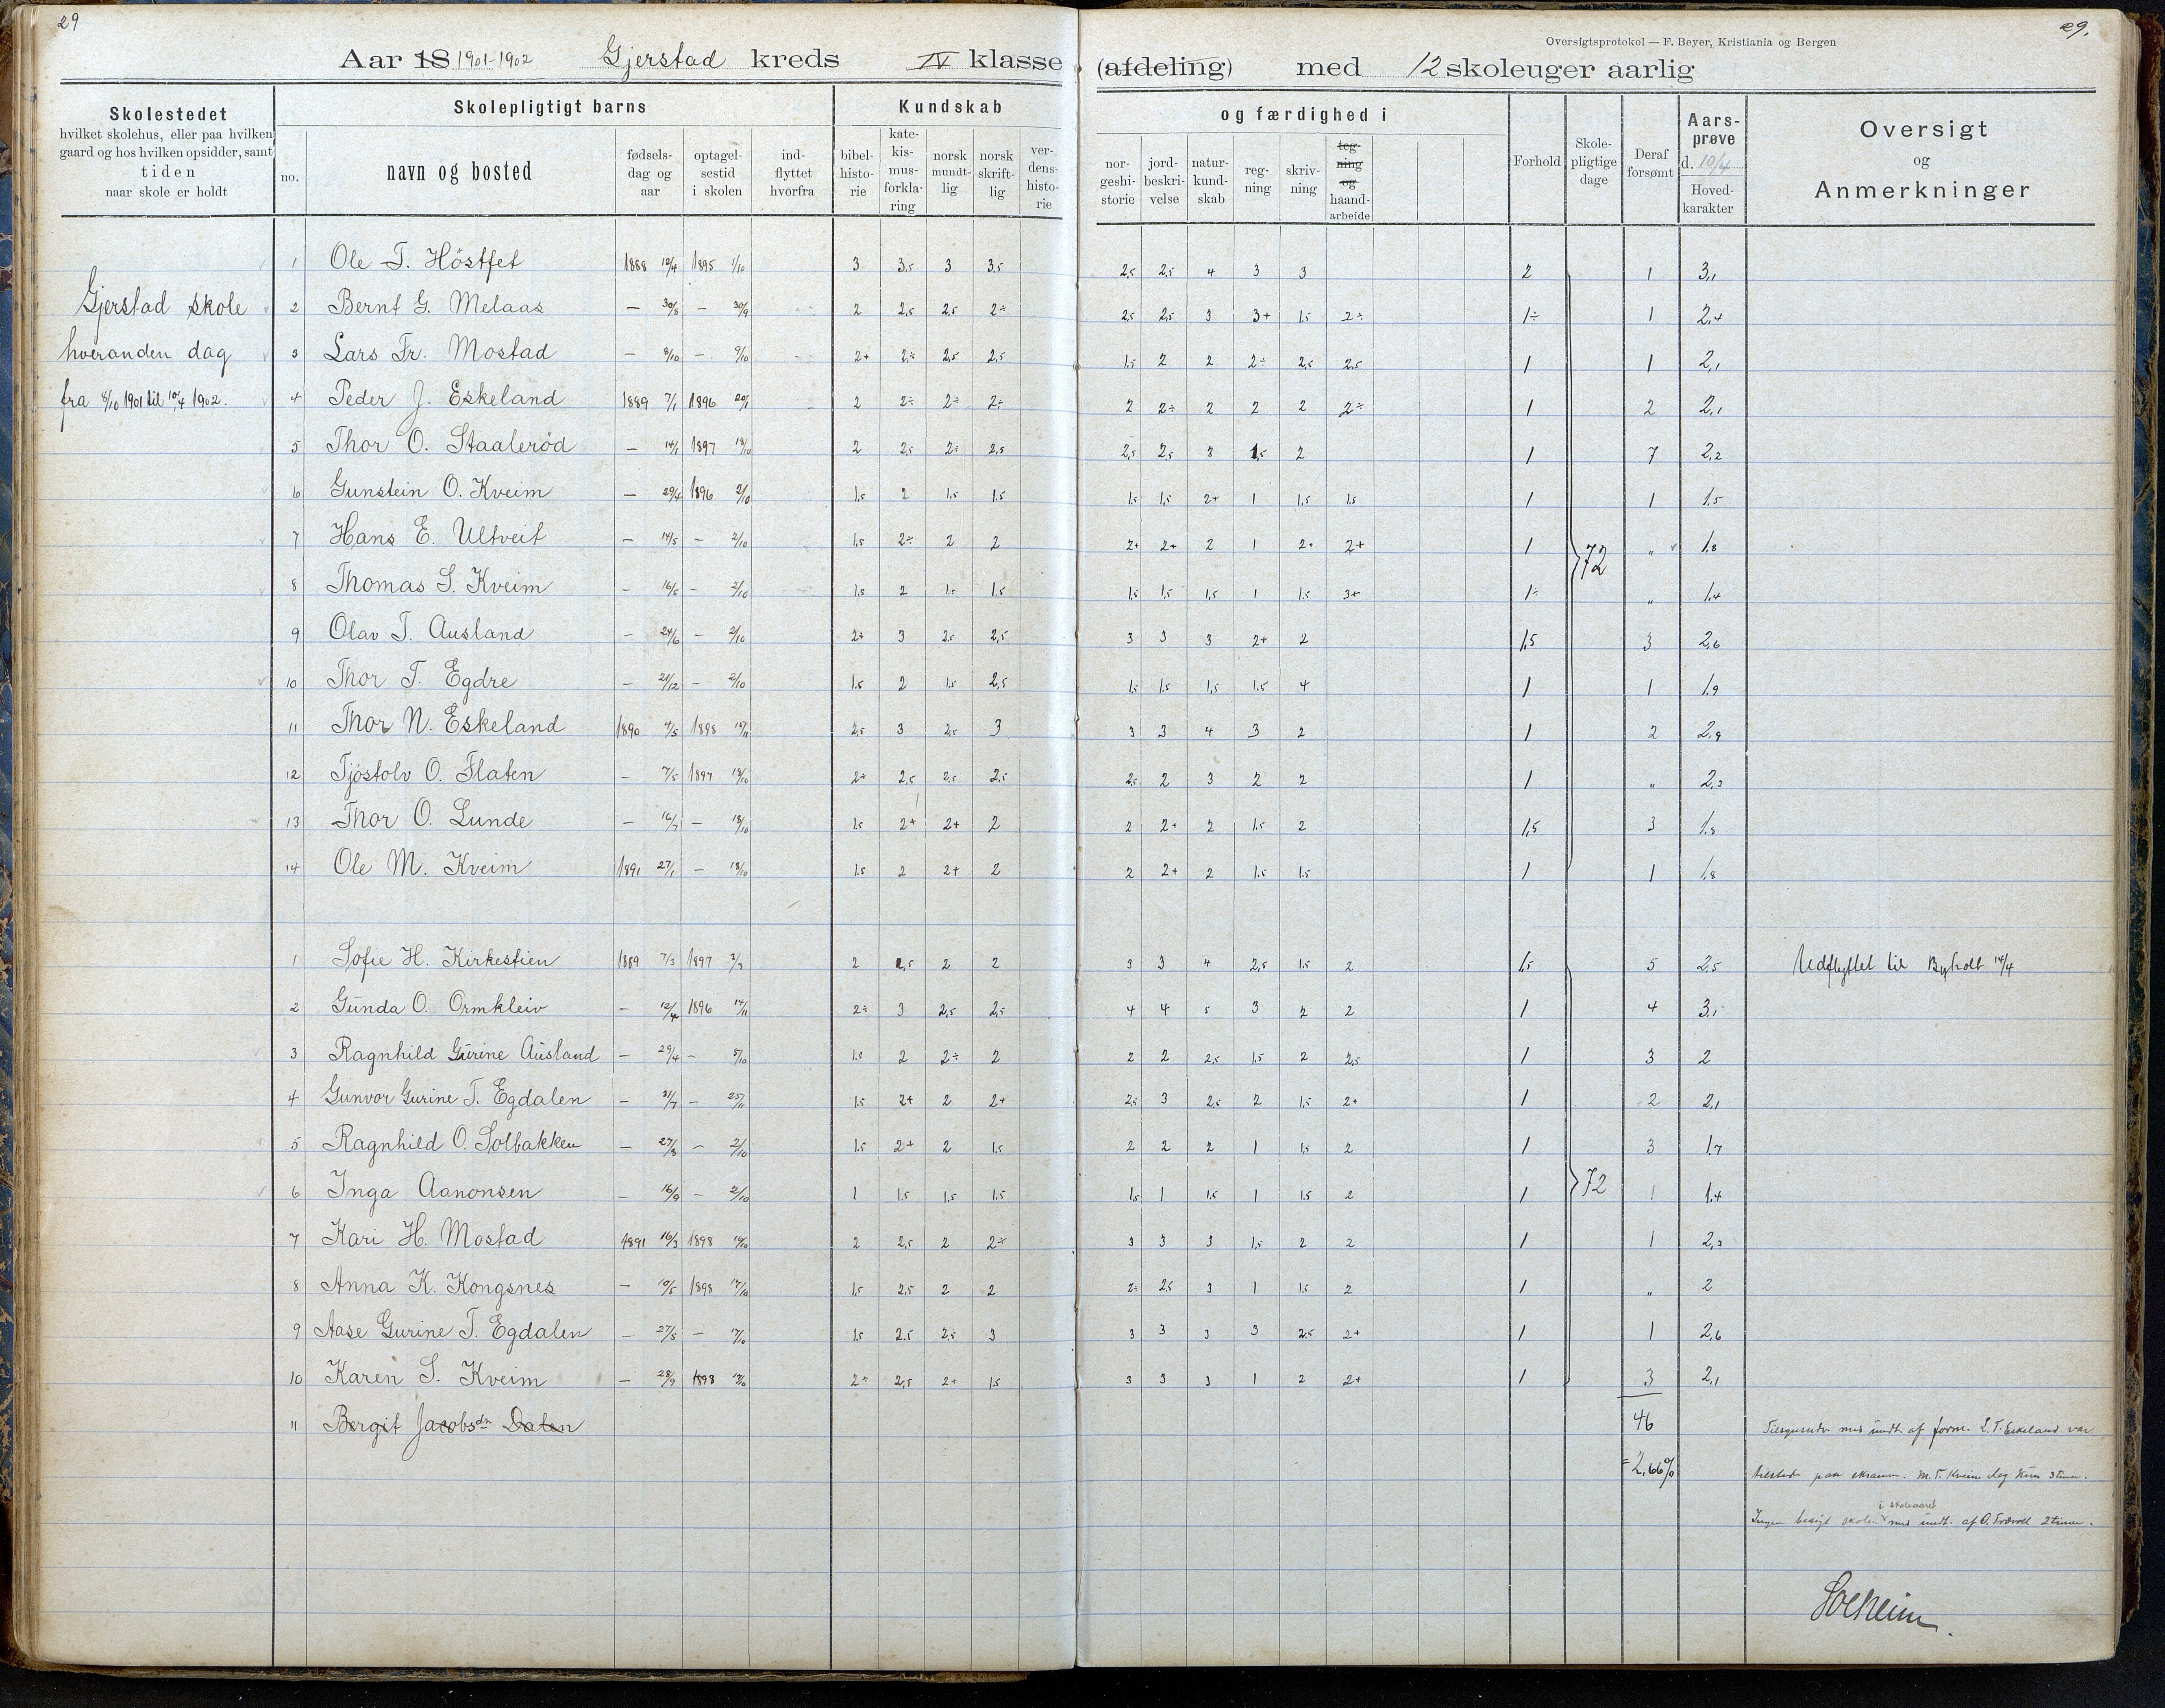 29
29.
Oversigtsprotokol — F. Beyer, Kristiania og Bergen
Aar 18 1901-1902 Gjerstad kreds IV klasse (afdeling) med 12 skoleuger aarlig
Skolestedet
hvilket skolehus, eller paa hvilken
gaard og hos hvilken opsidder, samt
tiden
naar skole er holdt
Skolepligtigt barns
no.
navn og bosted
fødsels-
dag og
aar
optagel-
sestid
i skolen
ind-
flyttet
hvorfra
Kundskab og færdighed i
bibel-
histo-
rie
kate-
kis-
mus-
forkla-
ring
norsk
mundt-
lig
norsk
skrift-
lig
ver-
dens-
histo-
rie
nor-
geshi-
storie
jord-
beskri-
velse
natur-
kund-
skab
reg-
ning
skriv-
ning
teg-
ning
og
haand-
arbeide
Forhold
Skole-
pligtige
dage
Deraf
forsømt
Aars-
prøve
d. 10/4
Hoved-
karakter
Oversigt
og
Anmerkninger
Gjerstad skole
hveranden dag
fra 8/10 1901 til 10/4 1902.
1 Ole T. Höstfet 1888 10/4 1895 1/10 3 3,5 3 3,5 2,5 2,5 4 3 3 2 1 3,1
2 Bernt G. Melaas — 30/8 — 30/9 2 2,5 2,5 2÷ 2,5 2,5 3 3+ 1,5 2÷ 1÷ 1 2,4
3 Lars Fr. Mostad — 8/10 — 9/10 2+ 2÷ 2,5 2,5 1,5 2 2 2÷ 2,5 2,5 1 1 2,1
4 Peder J. Eskeland 1889 7/1 1896 20/1 2 2÷ 2÷ 2÷ 2 2÷ 2 2 2 2÷ 1 2 2,1
5 Thor O. Staalerød — 14/1 1897 18/10 2 2,5 2÷ 2,5 2,5 2,5 3 1,5 2 1 7 2,2
6 Gunstein O. Kveim — 29/4 1896 2/10 1,5 2 1,5 1,5 1,5 1,5 2+ 1 1,5 1,5 1 1 1,5
7 Hans E. Ultveit — 14/5 — 2/10 1,5 2÷ 2 2 2+ 2+ 2 1 2+ 2+ 1 72 „ 1,8
8 Thomas S. Kveim — 16/5 — 2/10 1,5 2 1,5 1,5 1,5 1,5 1,5 1 1,5 3+ 1÷ „ 1,4
9 Olav T. Ausland — 24/6 — 2/10 2÷ 3 2,5 2,5 3 3 3 2+ 2 1,5 3 2,6
10 Thor T. Egdre — 21/12 — 2/10 1,5 2 1,5 2,5 1,5 1,5 1,5 1,5 4 1 1 1,9
11 Thor N. Eskeland 1890 4/5 1898 2,5 3 2,5 3 3 3 4 3 2 1 2 2,9
12 Tjöstolv O. Flaten — 7/5 1897 18/10 2+ 2,5 2,5 2,5 2,5 2 3 2 2 1 „ 2,3
13 Thor O. Lunde — 16/7 — 18/10 1,5 2+ 2+ 2 2 2+ 2 1,5 2 1,5 3 1,8
14 Ole M. Kveim 1891 27/1 — 18/10 1,5 2 2+ 2 2 2+ 2 1,5 1,5 1 1 1,8
1 Sofie H. Kirkestien 1889 7/3 1897 3/3 2 2,5 2 2 3 3 4 2,5 1,5 2 1,5 5 2,5 Udflyttet til Byholt 14/4
2 Gunda O. Ormkleiv — 12/4 1896 14/11 2÷ 3 2,5 2,5 4 4 5 3 2 2 1 4 3,1
3 Ragnhild Gurine Ausland — 29/4 — 5/10 1,5 2 2÷ 2 2 2 2,5 1,5 2 2,5 1 3 2
4 Gunvor Gurine T. Egdalen — 31/7 — 25/11 1,5 2+ 2 2+ 2,5 3 2,5 2 1,5 2+ 1 2 2,1
5 Ragnhild O. Solbakken — 27/8 — 2/10 1,5 2+ 2 1,5 2 2 2 1 1,5 2 1 3 1,7
6 Inga Aanonsen — 16/9 — 2/10 1 1,5 1,5 1,5 1,5 1 1,5 1 1,5 2 1 72 1 1,4
7 Kari H. Mostad 1891 16/3 1898 2 2,5 2 2÷ 3 3 3 1,5 2 2 1 1 2,3
8 Anna K. Kongsnes — 10/5 1898 17/10 1,5 2,5 2 2 2÷ 2,5 3 1 1,5 2 1 „ 2
9 Aase Gurine T. Egdalen — 27/5 — 17/10 1,5 2,5 2,5 3 3 3 3 3 2,5 2+ 1 1 2,6
10 Karen S. Kveim — 28/9 1898 17/10 2÷ 2,5 2+ 1,5 3 3 3 1 2 2+ 1 3 2,1
11 Bergit Jacobsdn Dalen
46
= 2,66%
Tilsynsudv. med undt. af form. L. T. Eskeland var
tilstede paa eksamen. M. T. Kveim dog kun 3 timer.
i skoleaaret
Ingen besøgt skolen med undt. af O. 2 timer.
Solheim.